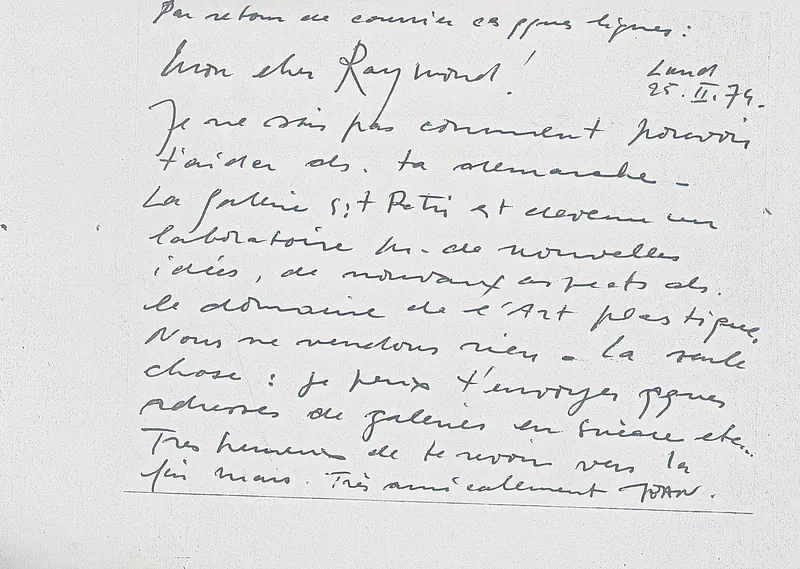 Par retour de courrier ces qques lignes :
Mon cher Raymond !
Lund
25. II. 74.
Je ne sais pas comment pouvoir
t'aider ds. ta démarche -
La galerie St Petri est devenue un
laboratoire de nouvelles
idées, de nouveaux aspects ds.
le domaine de l'Art plastique.
Nous ne vendons rien - La seule
chose : je peux t'envoyer qques
adresses de galeries en Suède etc...
Très heureux de te revoir vers la
fin mars. Très amicalement JEAN.